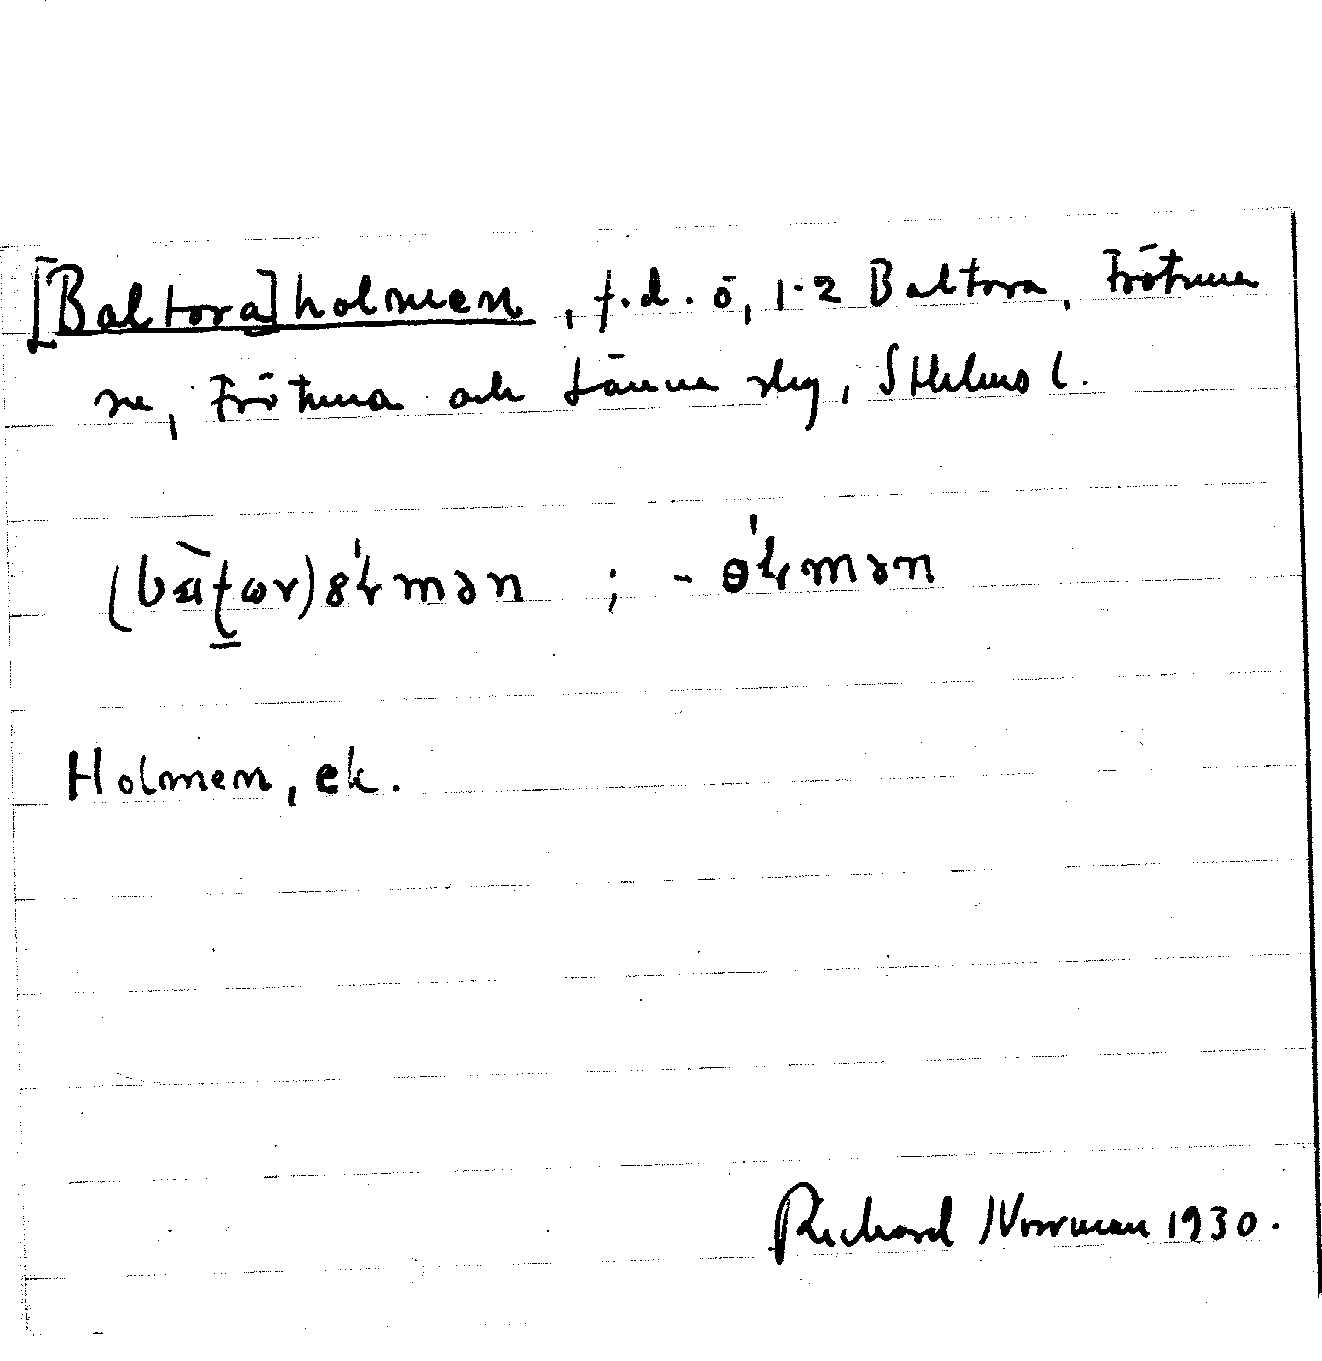 [Baltora]holmen, f.d. ö, 1-2 Baltora, Frötuna
sn, Frötuna och Länna skg, Sthlms l.
Holmen, ek.
Richard Norrman 1930.